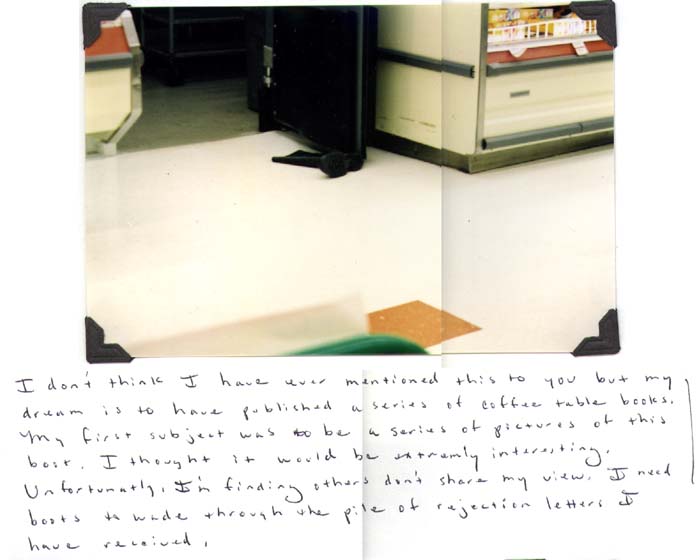 I don't think I have ever mentioned this to you but my
dream is to have published a series of coffee table books.
My first subject was to be a series of pictures of this
boot. I thought it would be extremly interesting.
Unfortunatly, I'm finding others don't share my view. I need
boots to wade through the pile of rejection letters I
have received.